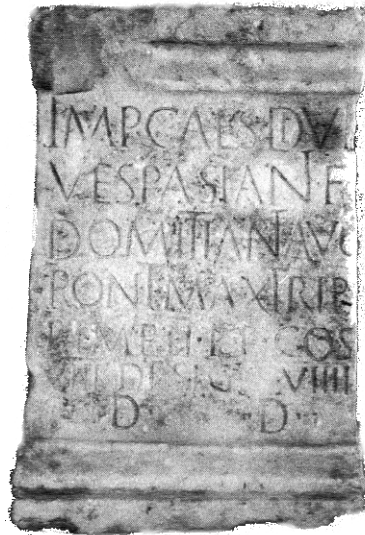 IMP·CAES·DIVI
VESPASIAN·F
DOMITIAN·AVG
PONT·MAX·TRIB
COS
DESIG VIIII
D D